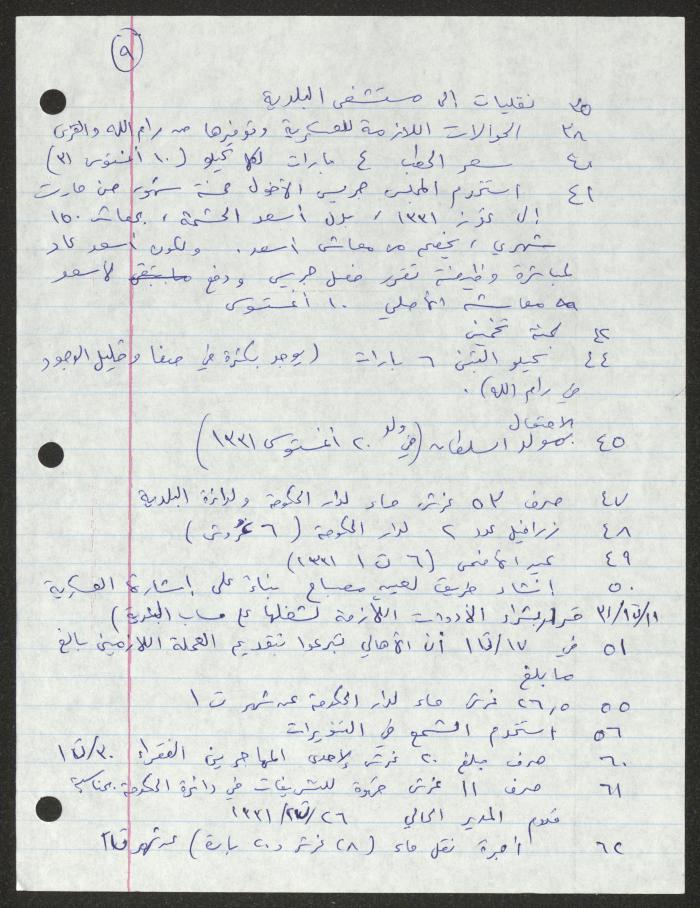 ٩
٣٥ نقليات الى مستشفى البلدية
٣٨ الحوالات اللازمة للعسكرية وتوفيرها من رام الله والقرى
٤٠ سعر الحطب ٤ بارات لكل كيلو (١٠ أغستوس ٣١)
٤١ استخدم المجلس جريس الأخول خمسة شهور من مارت
الى تموز ١٣٣١، بدل أسعد الحشمة، بمعاش ١٥٠
شهري، يخصم من معاش اسعد. ولكون أسعد عاد
لمباشرة وظيفته تقرر فصل جريس ودفع ما تبقى لأسعد
معاشه الأصلي ١٠ أغستوس
٤٢ لجنة تخمين
٤٤ كيلو التبن ٦ بارات (يوجد بكثرة في صفا وقليل الوجود
في رام الله).
الاحتفال
٤٥ بمولد السلطان (في ولد ٢٠ أغستوس ١٣٣١)
٤٧ صرف ٥٣ غرش ماء لدار الحكومة ولدائرة البلدية
٤٨ زرافيل عدد ٢ لدار الحكومة (٦ غروش)
٤٩ عيد الأضحى (٦ ت ١ ١٣٣١)
٥٠ انشاء طريق لعين مصباح بناءً على إشارة العسكرية
١١/ت١/٣١ قرار بشراء الأدوات اللازمة لشغلها على حساب البلدية)
٥١ في ١٧/ت١ أن الأهالي تبرعوا بتقديم العملة اللازمين بالغ
ما بلغ
٥٥ ٢٦,٥ غرش ماء لدار الحكومة عن شهر ت ١
٥٦ استخدم الشمع في التنويرات
٦٠ صرف مبلغ ٢٠ غرش لإحدى المهاجرين الفقراء ٣٠/ت١
٦١ صرف ١١ غرش قهوة للتشريفات في دائرة الحكومة بمناسبة
قدوم المدير الحالي ٢٦/ت٢/١٣٣١
٦٢ أجرة نقل ماء (٢٨ غرش و٢٠ بارة) عن شهر ت٢